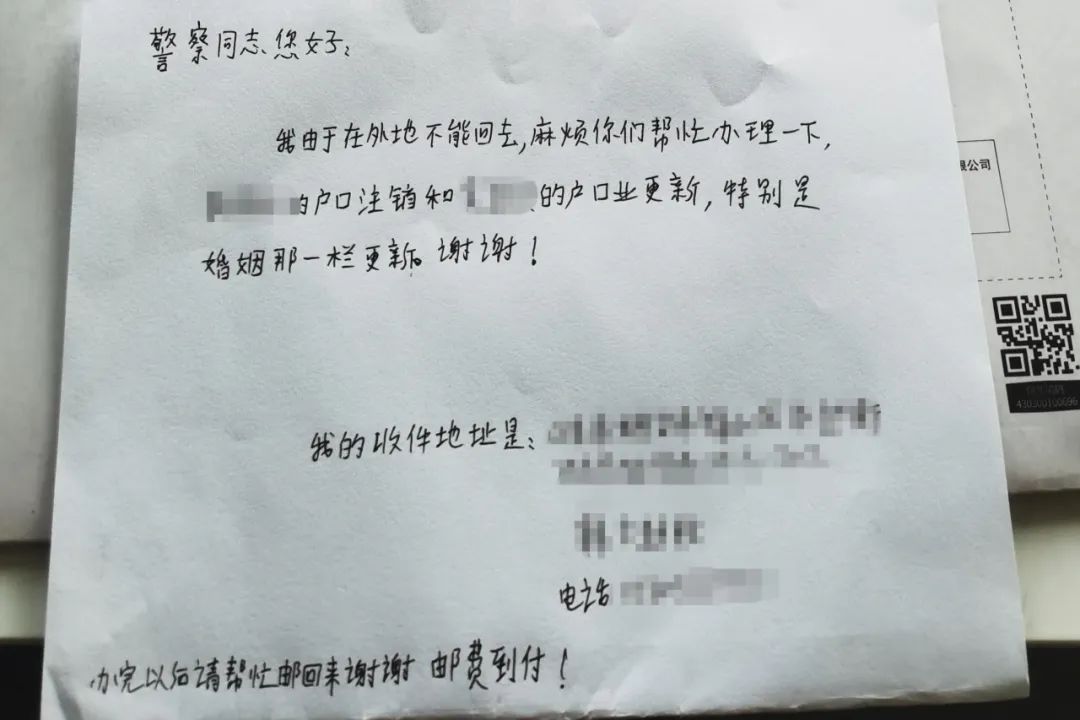 警察同志您好：
我由于在外地不能回去，麻烦你们帮忙办理一下，
的户口注销和 的户口业更新，特别是
婚姻那一栏更新。谢谢！
限公司
我的收件地址是：
430300100696
电话
办完以后请帮忙邮回来谢谢 邮费到付！